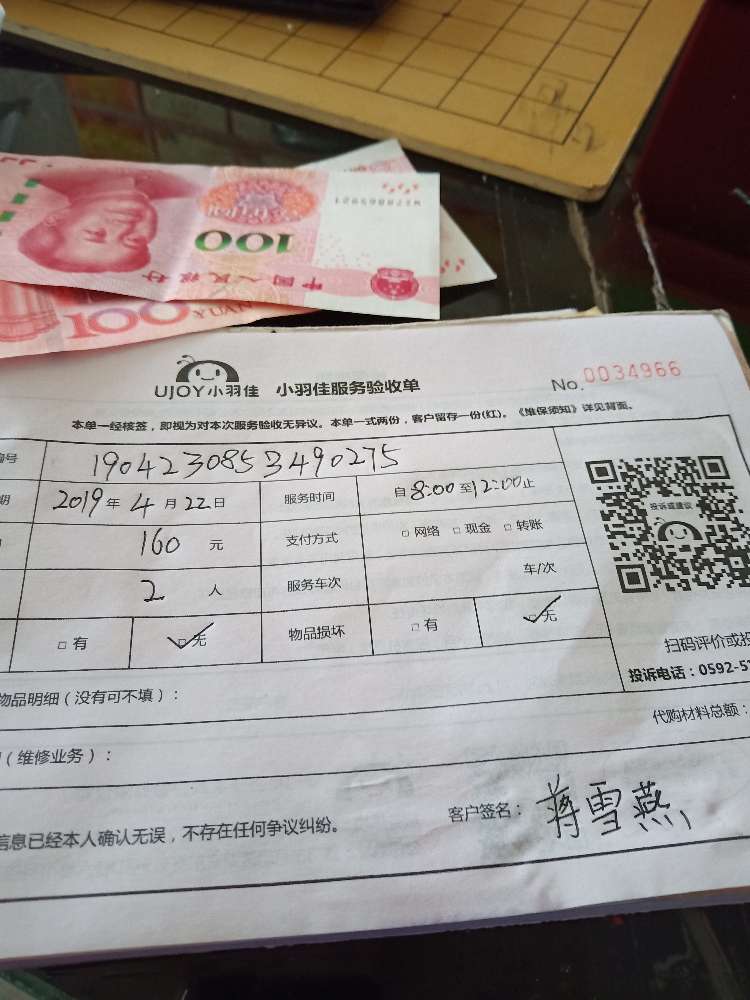 WZ78865921
100
中国人民银行
100 YUAN
UJOY小羽佳 小羽佳服务验收单 No.0034966
本单一经核签，即视为对本次服务验收无异议。本单一式两份，客户留存一份(红)。《维保须知》详见背面。
编号 1904230853490275
期 2019年4月22日 服务时间 自8:00至12:00止
160元 支付方式 □网络 □现金 □转账
2人 服务车次 车/次
□有 ☑无 物品损坏 □有 ☑无
投诉或建议
扫码评价或投
投诉电话：0592-5
物品明细（没有可不填）：
代购材料总额：
（维修业务）：
信息已经本人确认无误，不存在任何争议纠纷。
客户签名：蒋雪燕